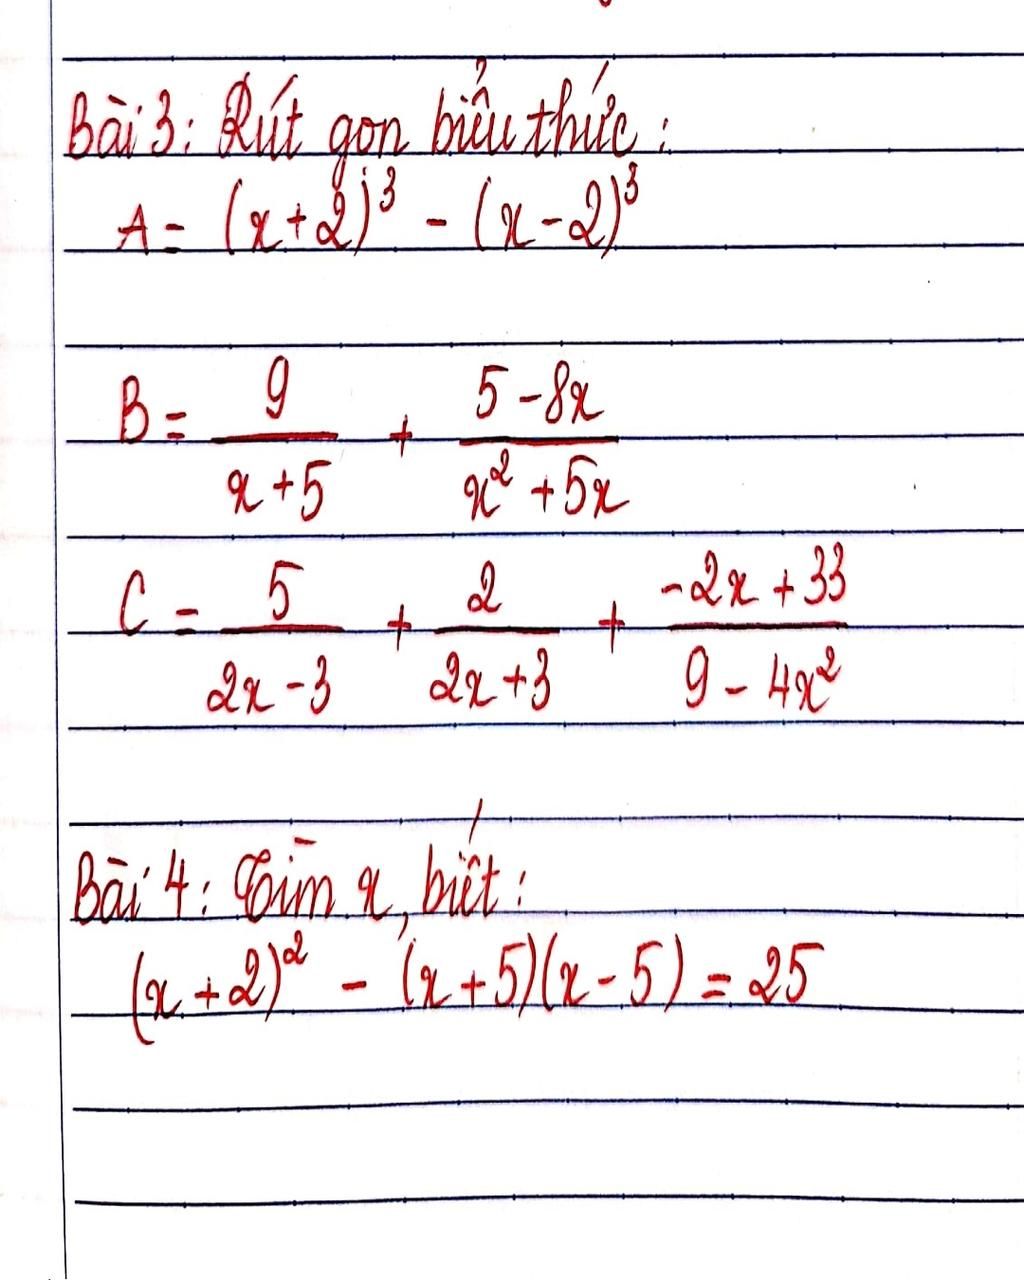 Bài 3: Rút gọn biểu thức:
A = (x+2)³ - (x-2)³
B = 9/(x+5) + (5-8x)/(x²+5x)
C = 5/(2x-3) + 2/(2x+3) + (-2x+33)/(9-4x²)
Bài 4: Tìm x, biết:
(x+2)² - (x+5)(x-5) = 25